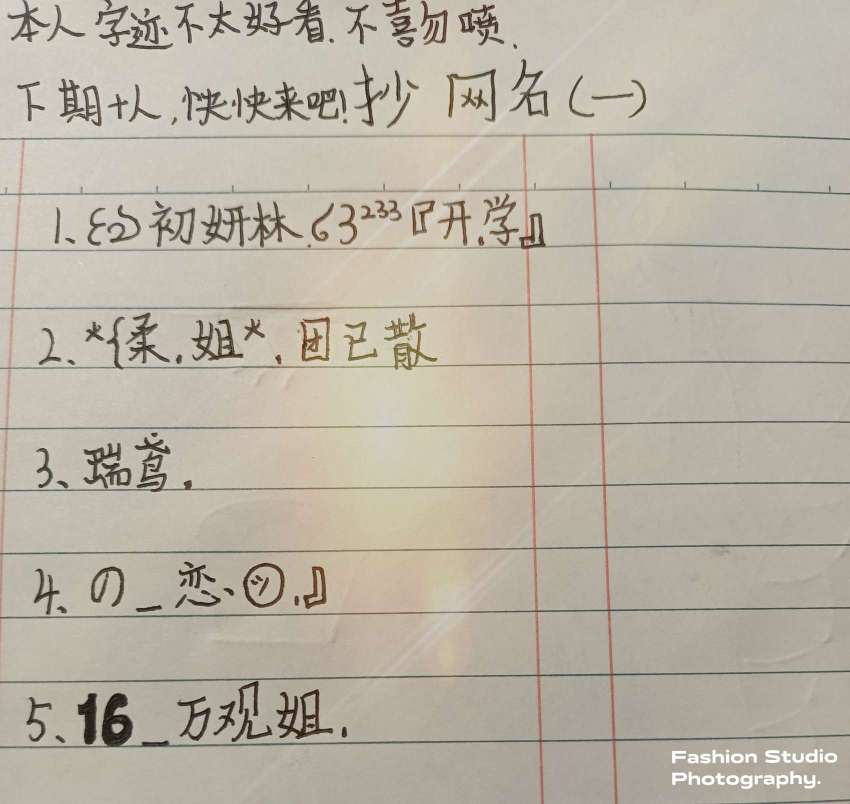 本人字迹不太好看.不喜勿喷.
下期十人,快快来吧!抄 网名(一)
1、ξح>初妍林.63²³³『开.学』
2、*{柔.姐*.团已散
3、瑞鸢.
4、の_恋、㋡.』
5、16_万观姐.
Fashion Studio
Photography.